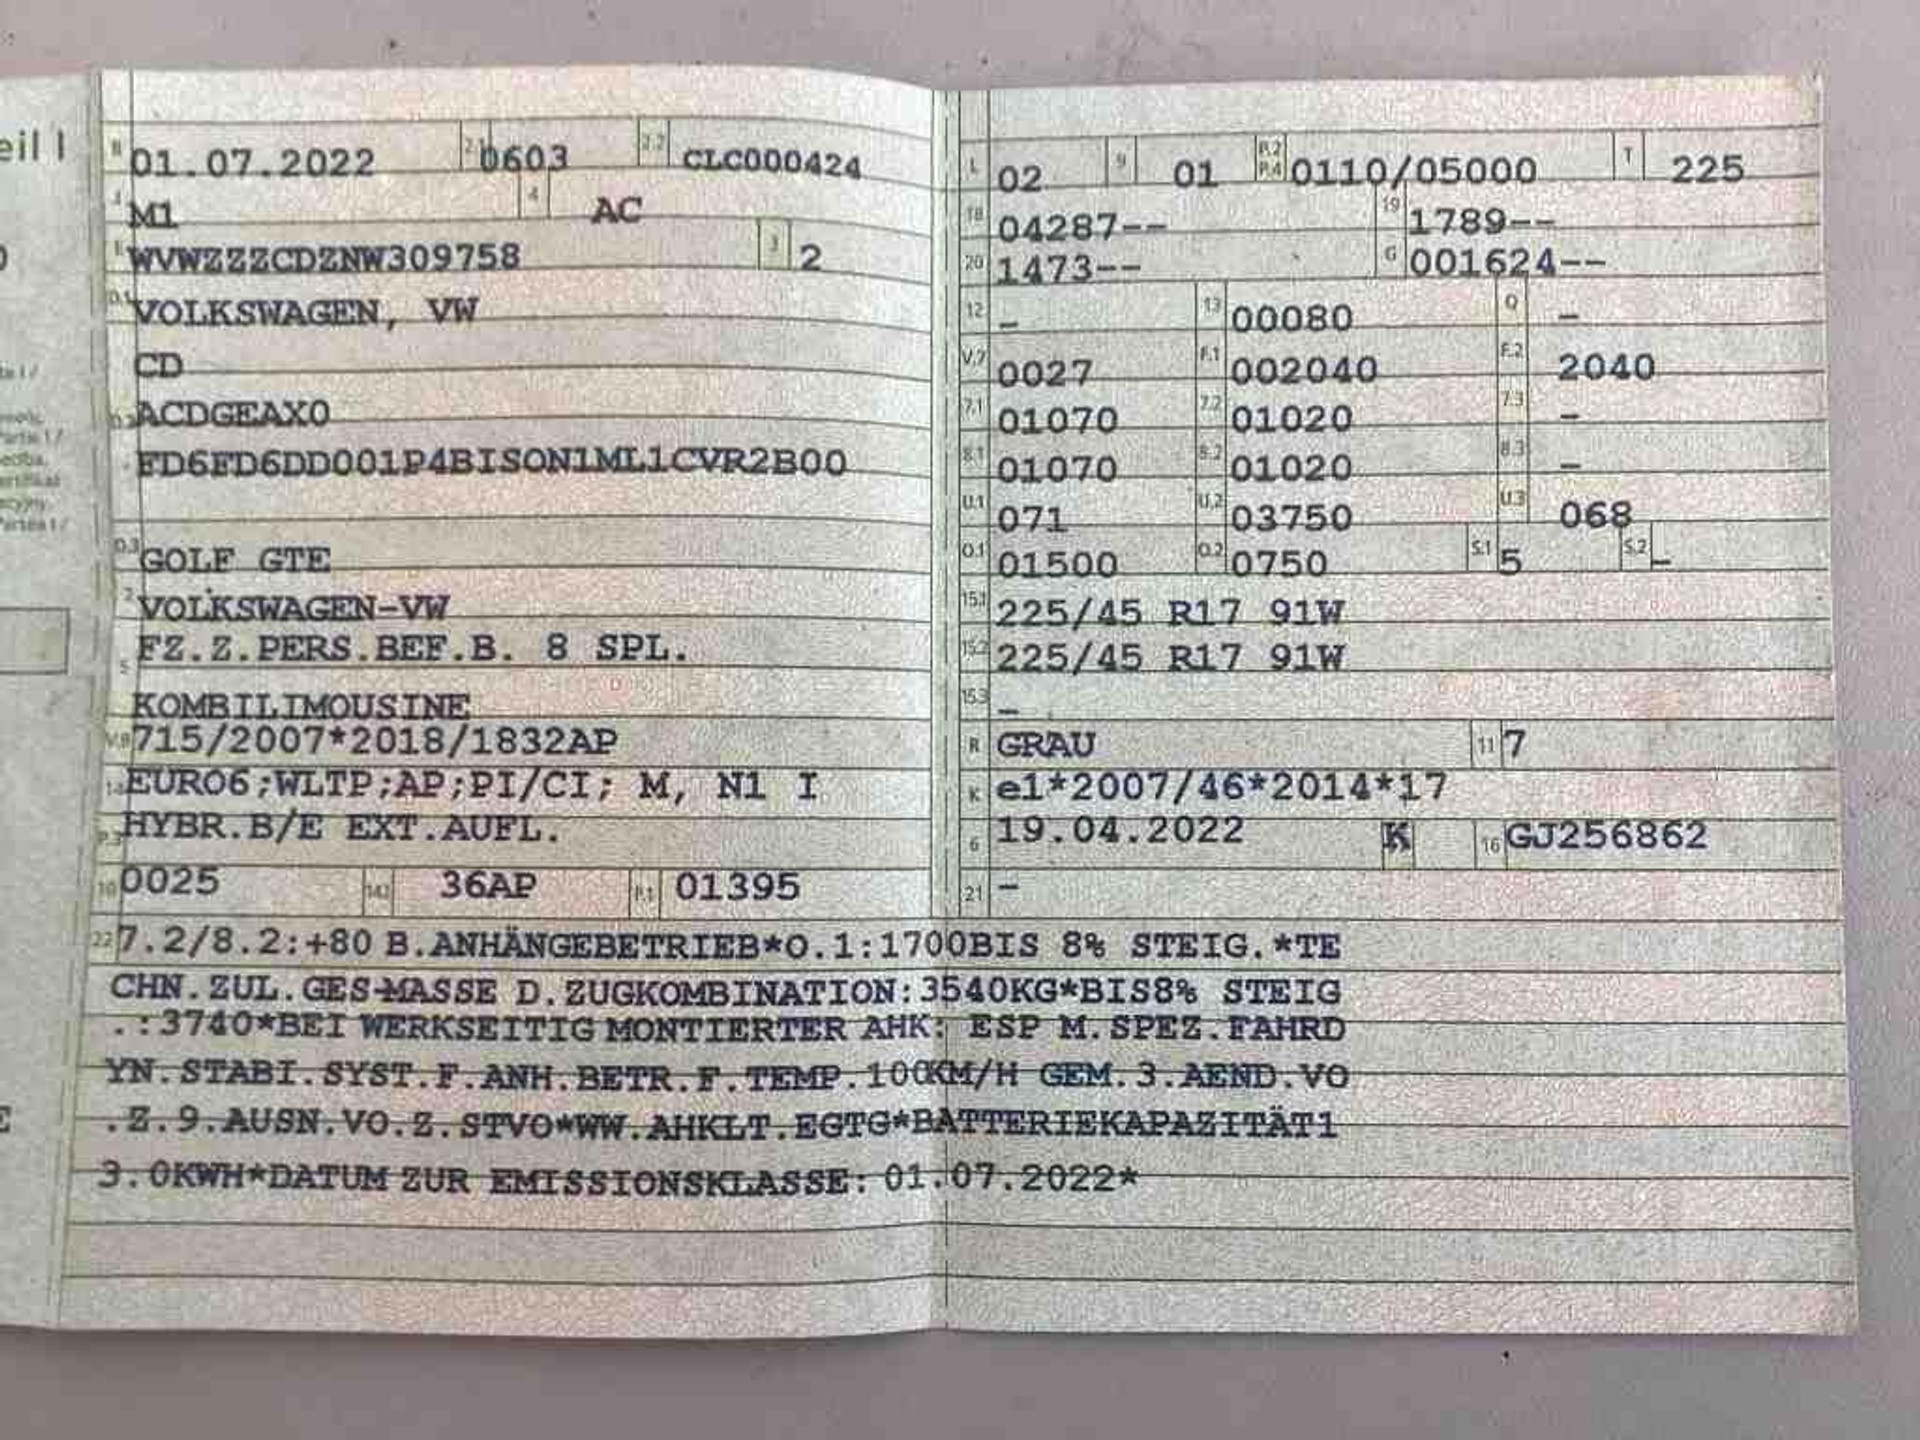 eil I
B 01.07.2022 2.1 0603 2.2 CLC000424
J M1 4 AC
E WVWZZZCDZNW309758 3 2
D.1 VOLKSWAGEN, VW
CD
D.2 ACDGEAX0
FD6FD6DD001P4BISON1ML1CVR2B00
D.3 GOLF GTE
2 VOLKSWAGEN-VW
FZ.Z.PERS.BEF.B. 8 SPL.
5
KOMBILIMOUSINE
V.9 715/2007*2018/1832AP
14 EURO6;WLTP;AP;PI/CI; M, N1 I
P.3 HYBR.B/E EXT.AUFL.
10 0025 14.1 36AP P.1 01395
L 02 9 01 P.2 P.4 0110/05000 T 225
18 04287-- 19 1789--
20 1473-- G 001624--
12 - 13 00080 Q -
V.7 0027 F.1 002040 F.2 2040
7.1 01070 7.2 01020 7.3 -
8.1 01070 8.2 01020 8.3 -
U.1 071 U.2 03750 U.3 068
O.1 01500 O.2 0750 S.1 5 S.2 -
15.1 225/45 R17 91W
15.2 225/45 R17 91W
15.3 -
R GRAU 11 7
K e1*2007/46*2014*17
6 19.04.2022 K 16 GJ256862
21 -
22 7.2/8.2:+80 B.ANHÄNGEBETRIEB*O.1:1700BIS 8% STEIG.*TE
CHN.ZUL.GES-MASSE D.ZUGKOMBINATION:3540KG*BIS8% STEIG
.:3740*BEI WERKSEITIG MONTIERTER AHK: ESP M.SPEZ.FAHRD
YN.STABI.SYST.F.ANH.BETR.F.TEMP.100KM/H GEM.3.AEND.VO
.Z.9.AUSN.VO.Z.STVO*WW.AHKLT.EGTG*BATTERIEKAPAZITÄT1
3.0KWH*DATUM ZUR EMISSIONSKLASSE: 01.07.2022*